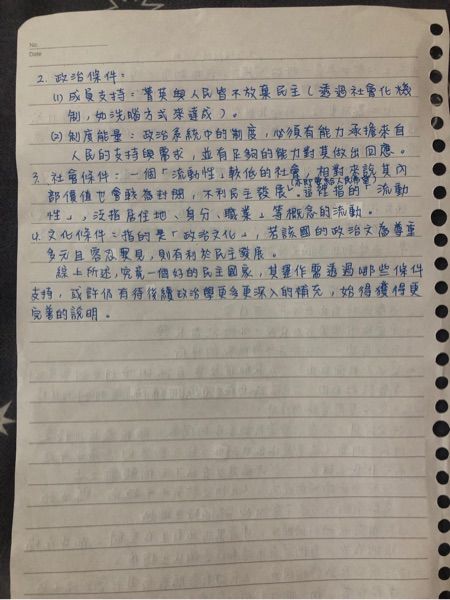 No.
Date
2. 政治條件：
(1) 成員支持：菁英與人民皆不放棄民主（透過社會化機
制，如洗腦方式來達成）。
(2) 制度能量：政治系統中的制度，必須有能力承擔來自
人民的支持與需求，並有足夠的能力對其做出回應。
3. 社會條件：一個「流動性」較低的社會，相對來說其內
部價值也會較為封閉，不利民主發展。這裡指的「流動
性」，泛指居住地、身分、職業等概念的流動。
4. 文化條件：指的是「政治文化」，若該國的政治文為尊重
多元且容忍異見，則有利於民主發展。
綜上所述，究竟一個好的民主國家，其運作需透過哪些條件
支持，或許仍有待後續政治學更多更深入的補充，始得獲得更
完善的說明。